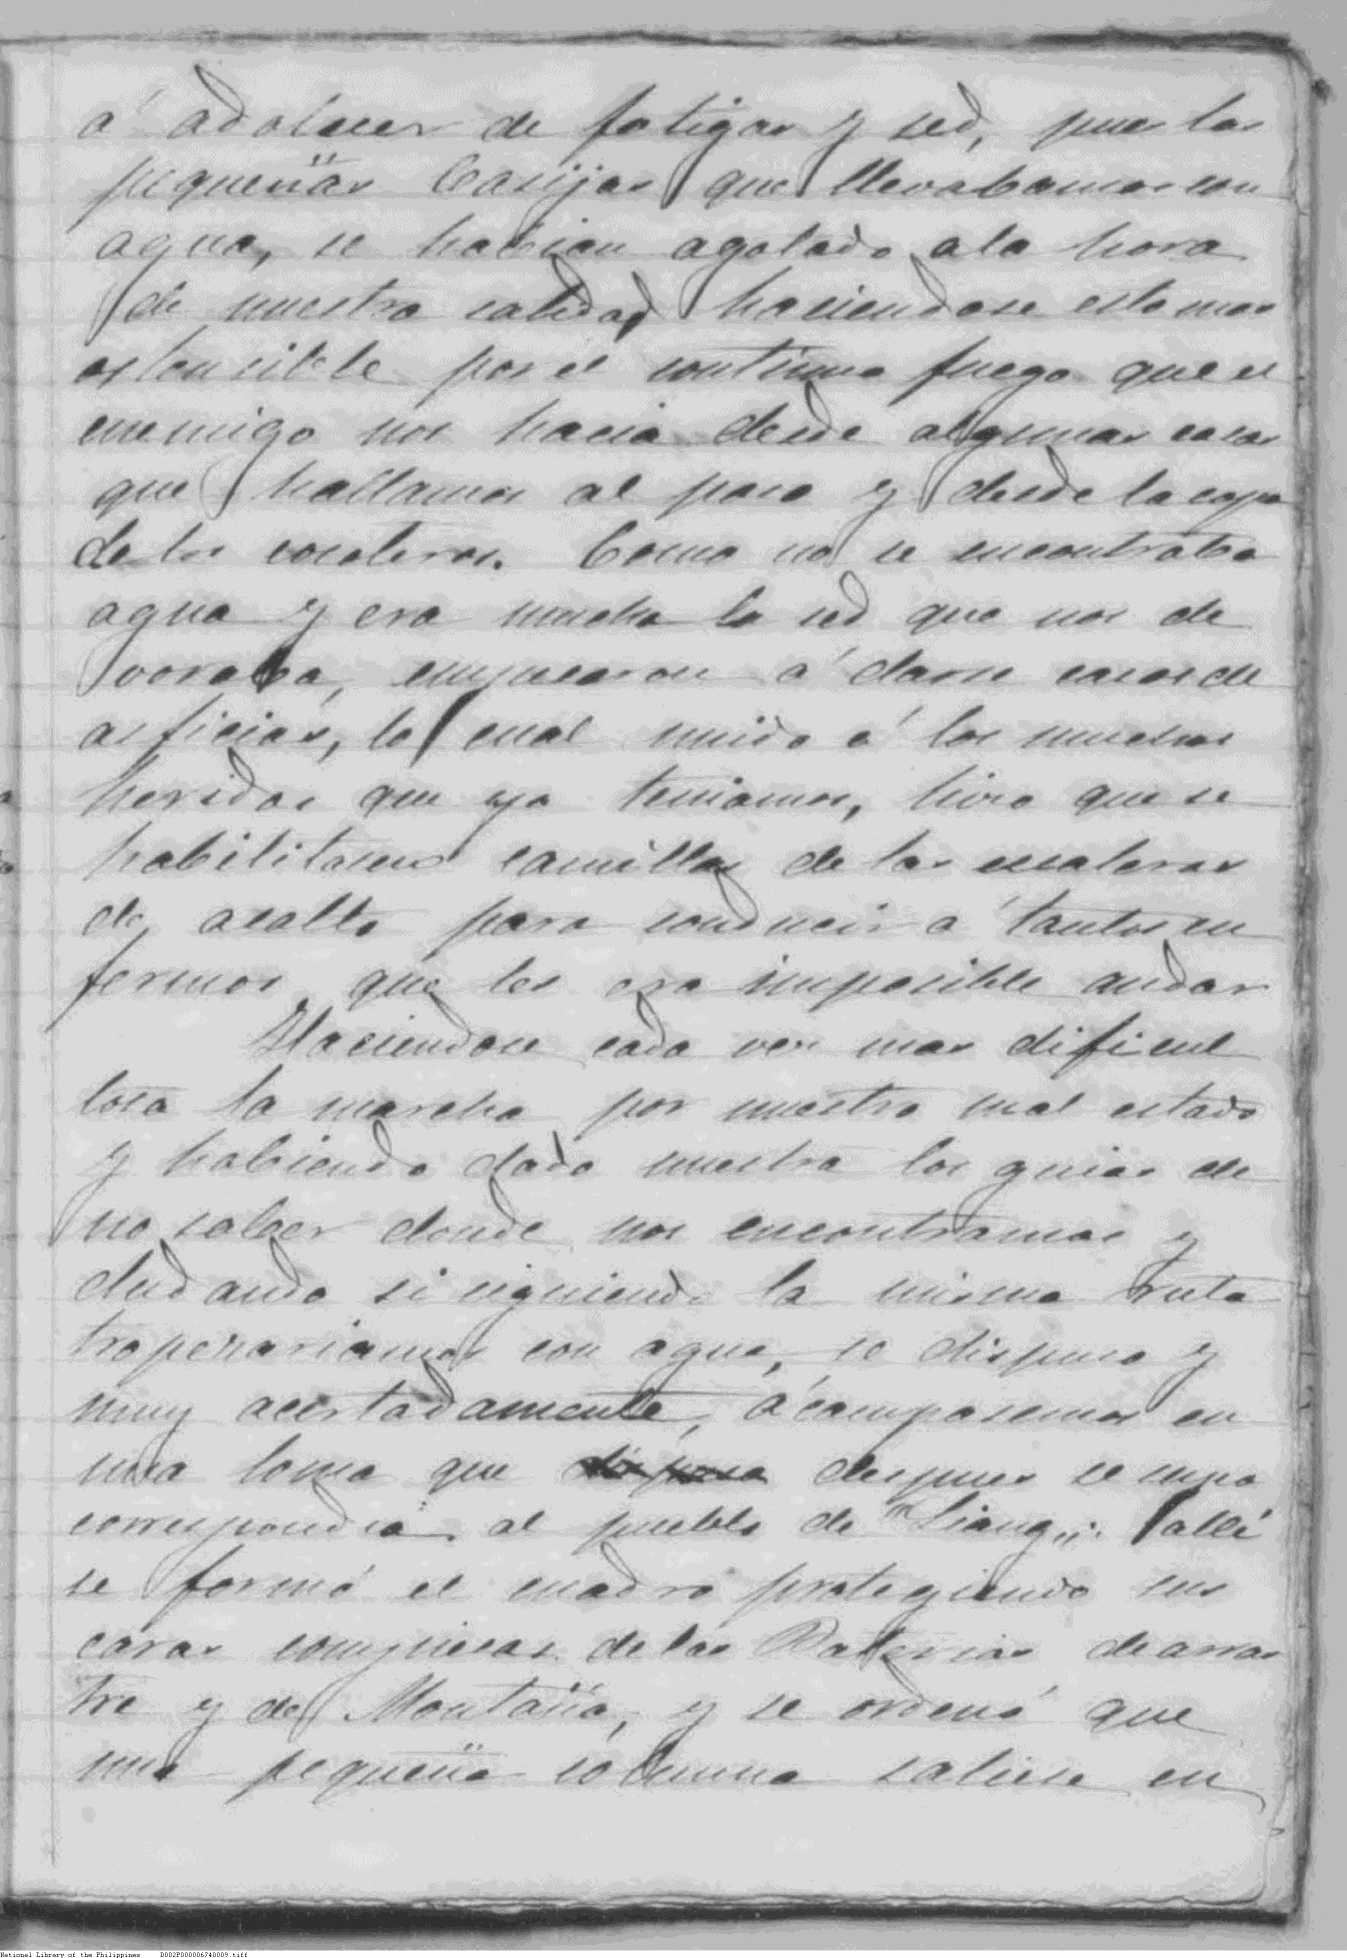 á adolecer de fatigas y sed, pues las
pequeñas basijas que llevabamos con
agua, se habian agotado a la hora
de nuestra salida, haciendose esto mas
ostensible por el continuo fuego que el
enemigo nos hacia desde algunas casas
que hallamos al paso y desde la copa
de los cocoteros. Como no se encontraba
agua y era mucha la sed que nos de
voraba, empezaron á darse casos de
asficias, lo cual unido á los muchos
heridos que ya teniamos, hizo que se
habilitasen camillas de las escaleras
de asalto para conducir a tantos en
fermos que les era imposible andar
Haciendose cada vez mas dificul
tosa la marcha por nuestro mal estado
y habiendo dado muestra los guias de
no saber donde nos encontramos y
dudando si siguiendo la misma ruta
tropezariamos con agua, se dispuso y
muy acertadamente, acampasemos en
una loma que despues se supo
correspondia al pueblo de "Liang"; allí
se formó el cuadro protegiendo sus
caras compuesas de las Baterias de arras
tre y de Montaña, y se ordenó que
una pequeña columna saliese en
National Library of the Philippines D002P000006740009.tiff